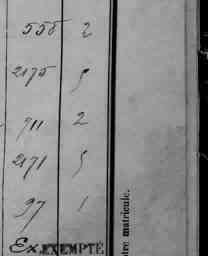 555 2
2175 5
911 2
2171 5
97 1
Ex. EXEMPTÉ
tre matricule.